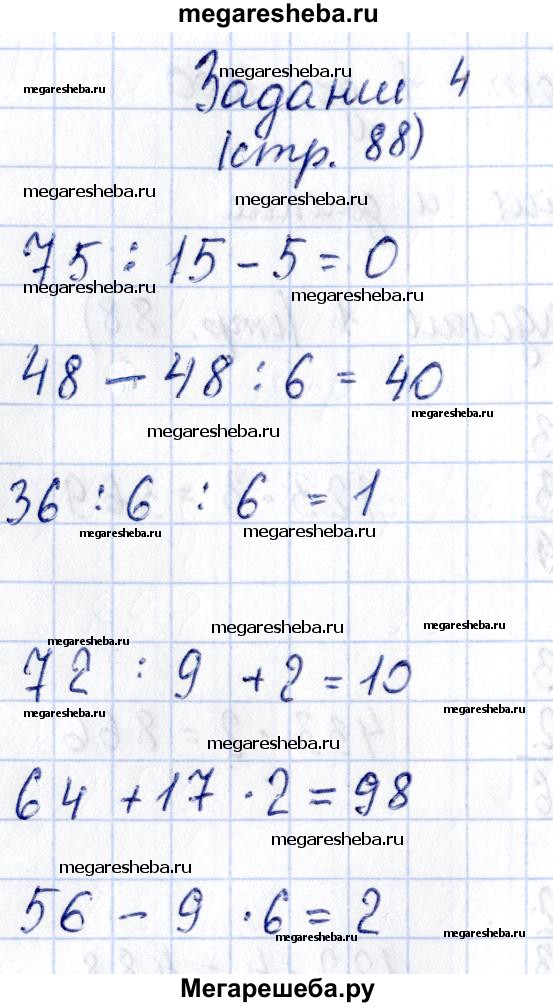 megaresheba.ru
megaresheba.ru
megaresheba.ru
Задании 4
(стр. 88)
megaresheba.ru
megaresheba.ru
75 : 15 - 5 = 0
megaresheba.ru
megaresheba.ru
48 - 48 : 6 = 40
megaresheba.ru
megaresheba.ru
36 : 6 : 6 = 1
megaresheba.ru
megaresheba.ru
megaresheba.ru
megaresheba.ru
megaresheba.ru
72 : 9 + 2 = 10
megaresheba.ru
megaresheba.ru
megaresheba.ru
64 + 17 · 2 = 98
megaresheba.ru
megaresheba.ru
56 - 9 · 6 = 2
megaresheba.ru
megaresheba.ru
Мегарешеба.ру